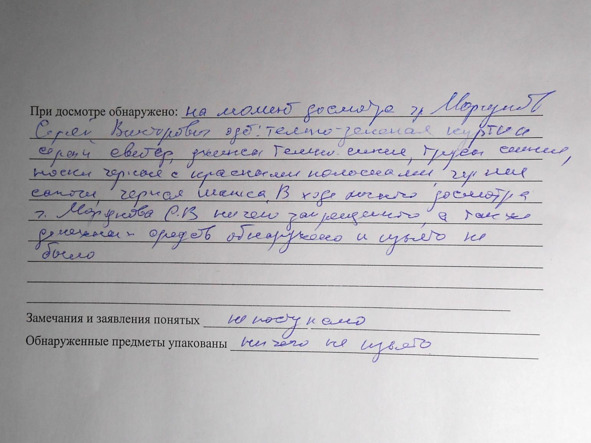 При досмотре обнаружено: на момент досмотра гр Моргунов
Сергей Викторович одет: темно-зеленая куртка
серый свитер, джинсы темно синие, трусы синие,
носки черные с красными полосками, черные
сапоги, черная шапка. В ходе личного досмотра
г. Моргунова С.В ничего запрещенного, а также
денежных средств обнаружено и изъято не
было
Замечания и заявления понятых не поступало
Обнаруженные предметы упакованы ничего не изъято